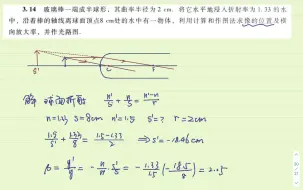 3.14 玻璃棒一端成半球形，其曲率半径为2 cm. 将它水平地浸入折射率为1.33的水
中，沿着棒的轴线离球面顶点8 cm处的水中有一物体，利用计算和作图法求像的位置及横
向放大率，并作光路图.
S'
C
解 球面折射 n'/s' + n/s = (n'-n)/r
n=1.33 s=8cm n'=1.5 s'=? r=2cm
1.5/s' + 1.33/8 = (1.5-1.33)/2 ⇒ s'=-18.46 cm
β = y'/y = -n/n' s'/s = -1.33/1.5 (-18.5/8) = 2.05